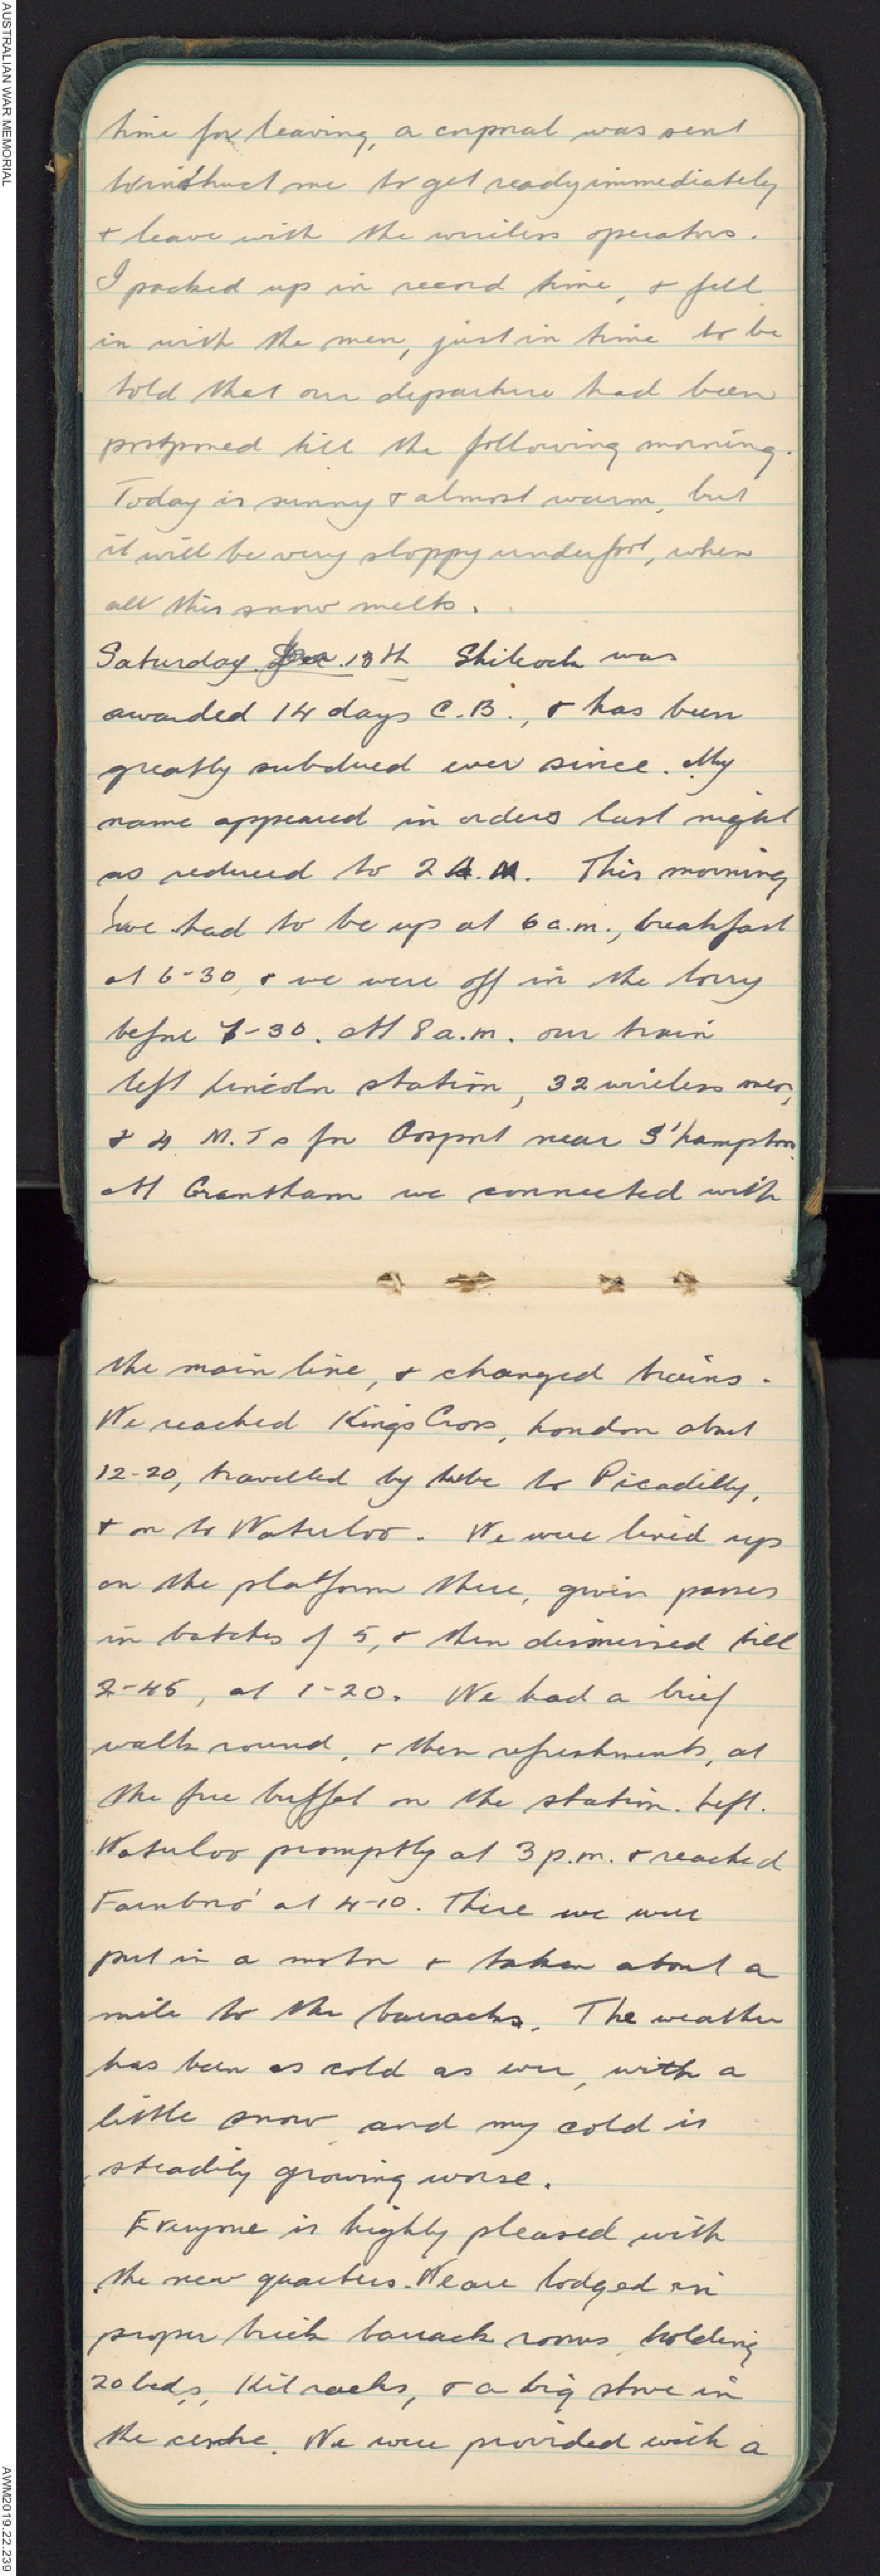 AUSTRALIAN WAR MEMORIAL
time for leaving, a corporal was sent
to instruct me to get ready immediately
& leave with the wireless operators.
I packed up in record time, & fell
in with the men, just in time to be
told that our departure had been
postponed till the following morning.
Today is sunny & almost warm, but
it will be very sloppy underfoot, when
all this snow melts.
Saturday 13th Shilcock was
awarded 14 days C.B., & has been
greatly subdued ever since. My
name appeared in orders last night
as reduced to 2 A.M. This morning
we had to be up at 6 a.m., breakfast
at 6-30, & we were off in the lorry
before 7-30. At 8 a.m. our train
left Lincoln station, 32 wireless men,
& 4 M.Ts for Gosport near S'hampton.
At Grantham we connected with
the main line, & changed trains.
We reached Kings Cross, London about
12-20, travelled by tube to Picadilly,
& on to Waterloo. We were lined up
on the platform there, given passes
in batches of 5, & then dismissed till
2-45, at 1-20. We had a brief
walk round, & then refreshments, at
the free buffet on the station. Left.
Waterloo promptly at 3 p.m. & reached
Farnboro' at 4-10. There we were
put in a motor & taken about a
mile to the barracks. The weather
has been as cold as ever, with a
little snow and my cold is
steadily growing worse.
Everyone is highly pleased with
the new quarters. We are lodged in
proper brick barrack rooms holding
20 beds, Kit racks, & a big stove in
the centre. We were provided with a
AWM2019.22.239